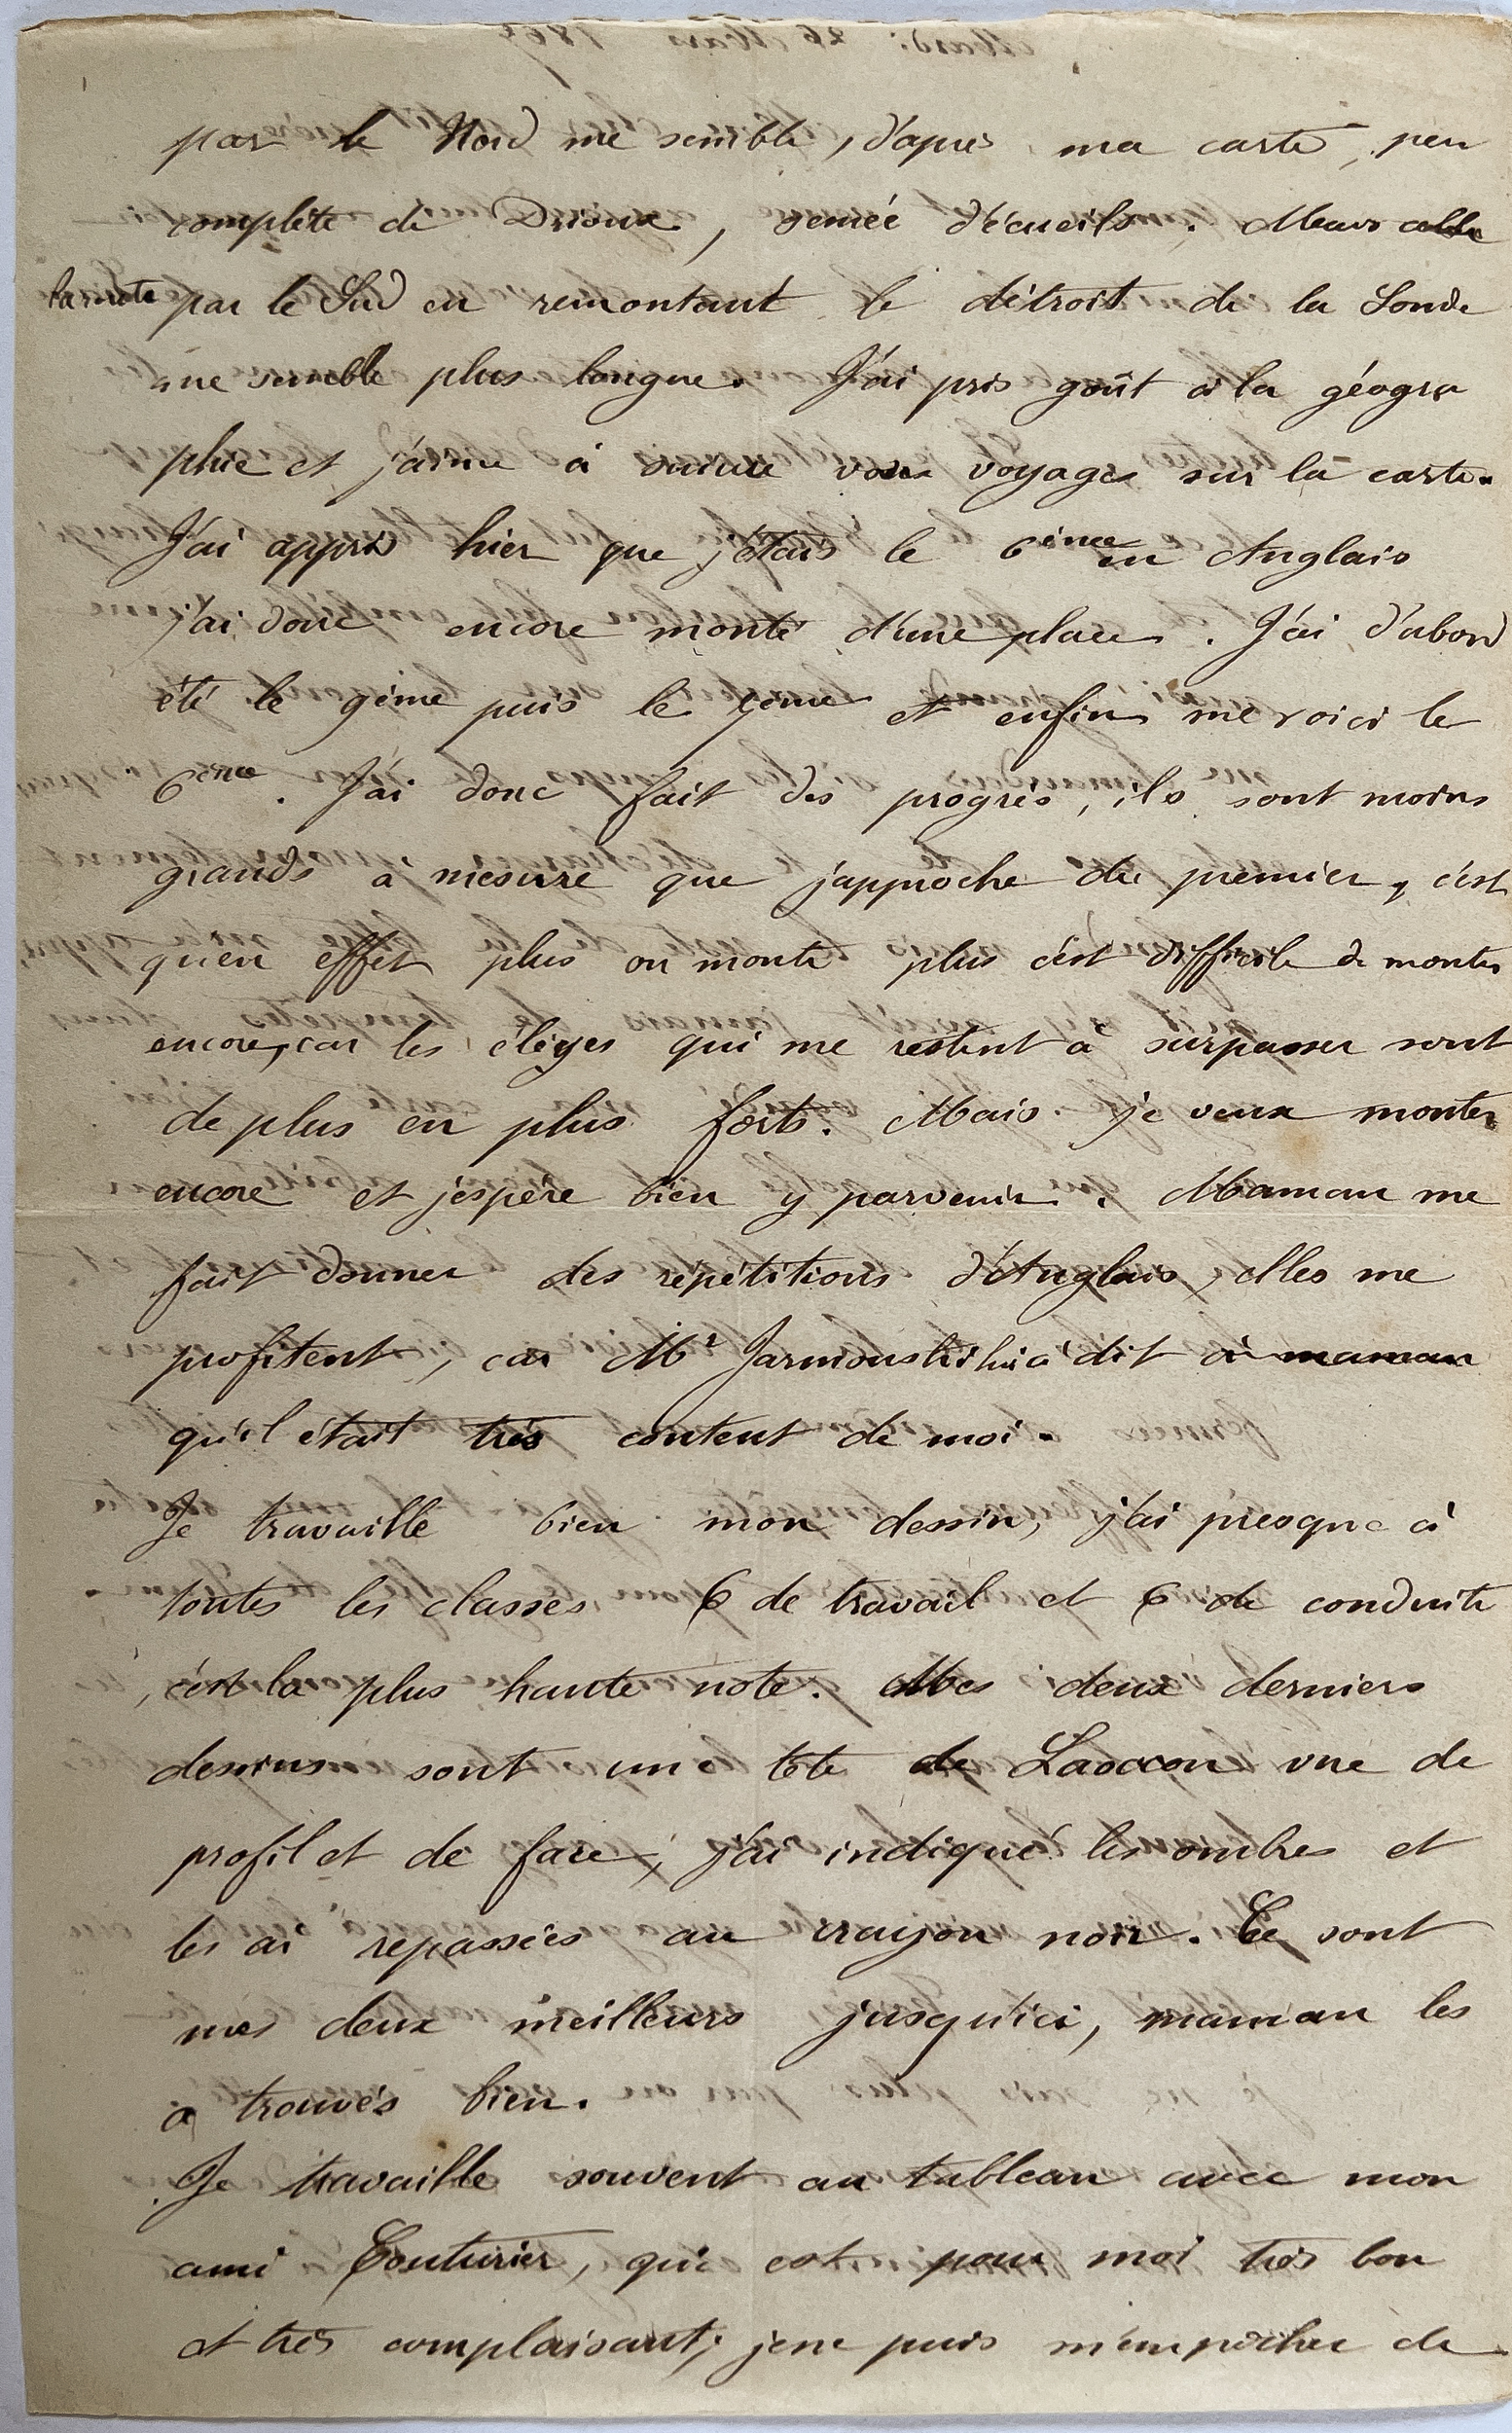 par le Nord me semble, d'après ma carte, peu
complète de Drioux, semée d'écueils. Mais celle
la route par le Sud en remontant le détroit de la Sonde
me semble plus longue. J'ai pris goût à la géogra
phie et j'aime à suivre vos voyages sur la carte.
J'ai appris hier que j'étais le 6ème en Anglais
j'ai donc encore monté d'une place. J'ai d'abord
été le 9ème puis le 7ème et enfin me voici le
6ème. J'ai donc fait des progrès, ils sont moins
grands à mesure que j'approche du premier, c'est
qu'en effet plus on monte plus c'est difficile de monter
encore, car les élèves qui me restent à surpasser sont
de plus en plus forts. Mais je veux monter
encore et j'espère bien y parvenir. Maman me
fait donner des répétitions d'Anglais, elles me
profitent, car Mr dit à maman
qu'il était très content de moi.
Je travaille bien mon dessin, j'ai presque à
toutes les classes 6 de travail et 6 de conduite
, c'est la plus haute note. Mes deux derniers
dessins sont une tête de Laocoon vue de
profil et de face, j'ai indiqué les ombres et
les ai repassées au crayon noir. Ce sont
mes deux meilleurs jusqu'ici, maman les
a trouvés bien.
Je travaille souvent au tableau avec mon
ami Couturier, qui est pour moi très bon
et très complaisant; je ne puis m'empêcher de